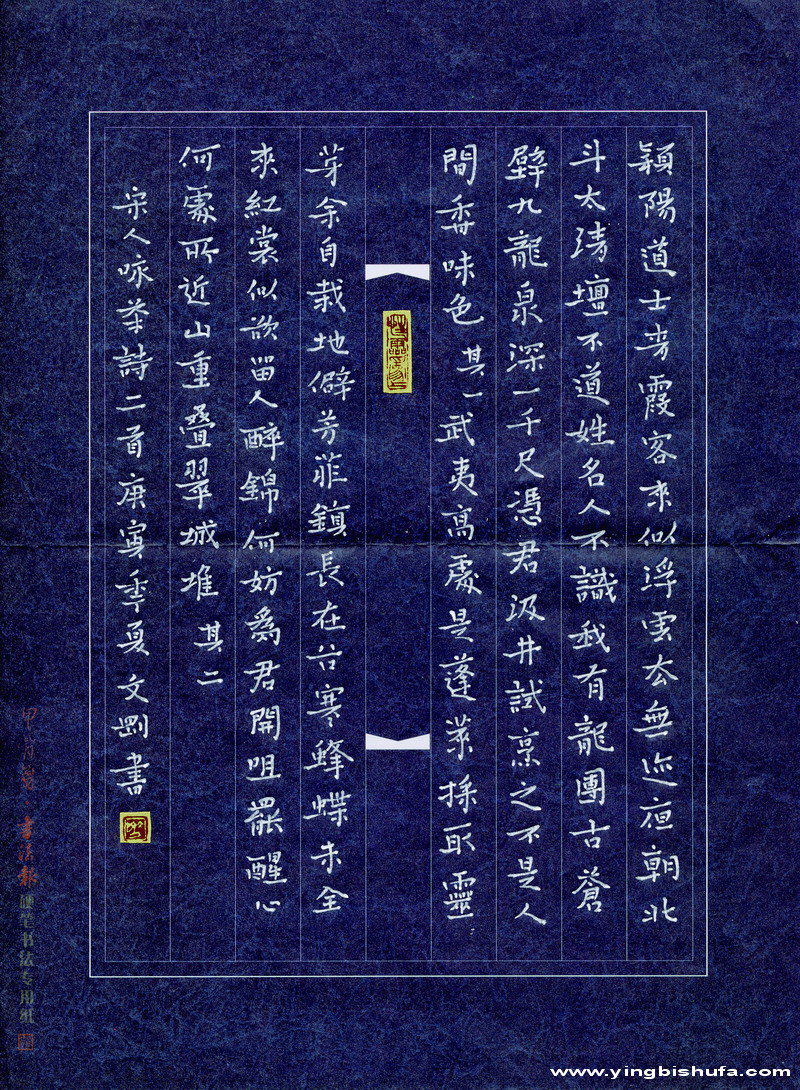 穎陽道士青霞客來似浮雲去無迹夜朝北
斗太清壇不道姓名人不識我有龍團古蒼
璧九龍泉深一千尺憑君汲井試烹之不是人
間香味色 其一 武夷高處是蓬萊採取靈
芽余自栽地僻芳菲鎮長在谷寒蜂蝶未全
來紅裳似欲留人醉錦 何妨為君開咀罷醒心
何處所近山重叠翠城堆 其二
宋人咏茶詩二首庚寅季夏文剛書
書法報
硬笔书法专用纸
www.yingbishufa.com